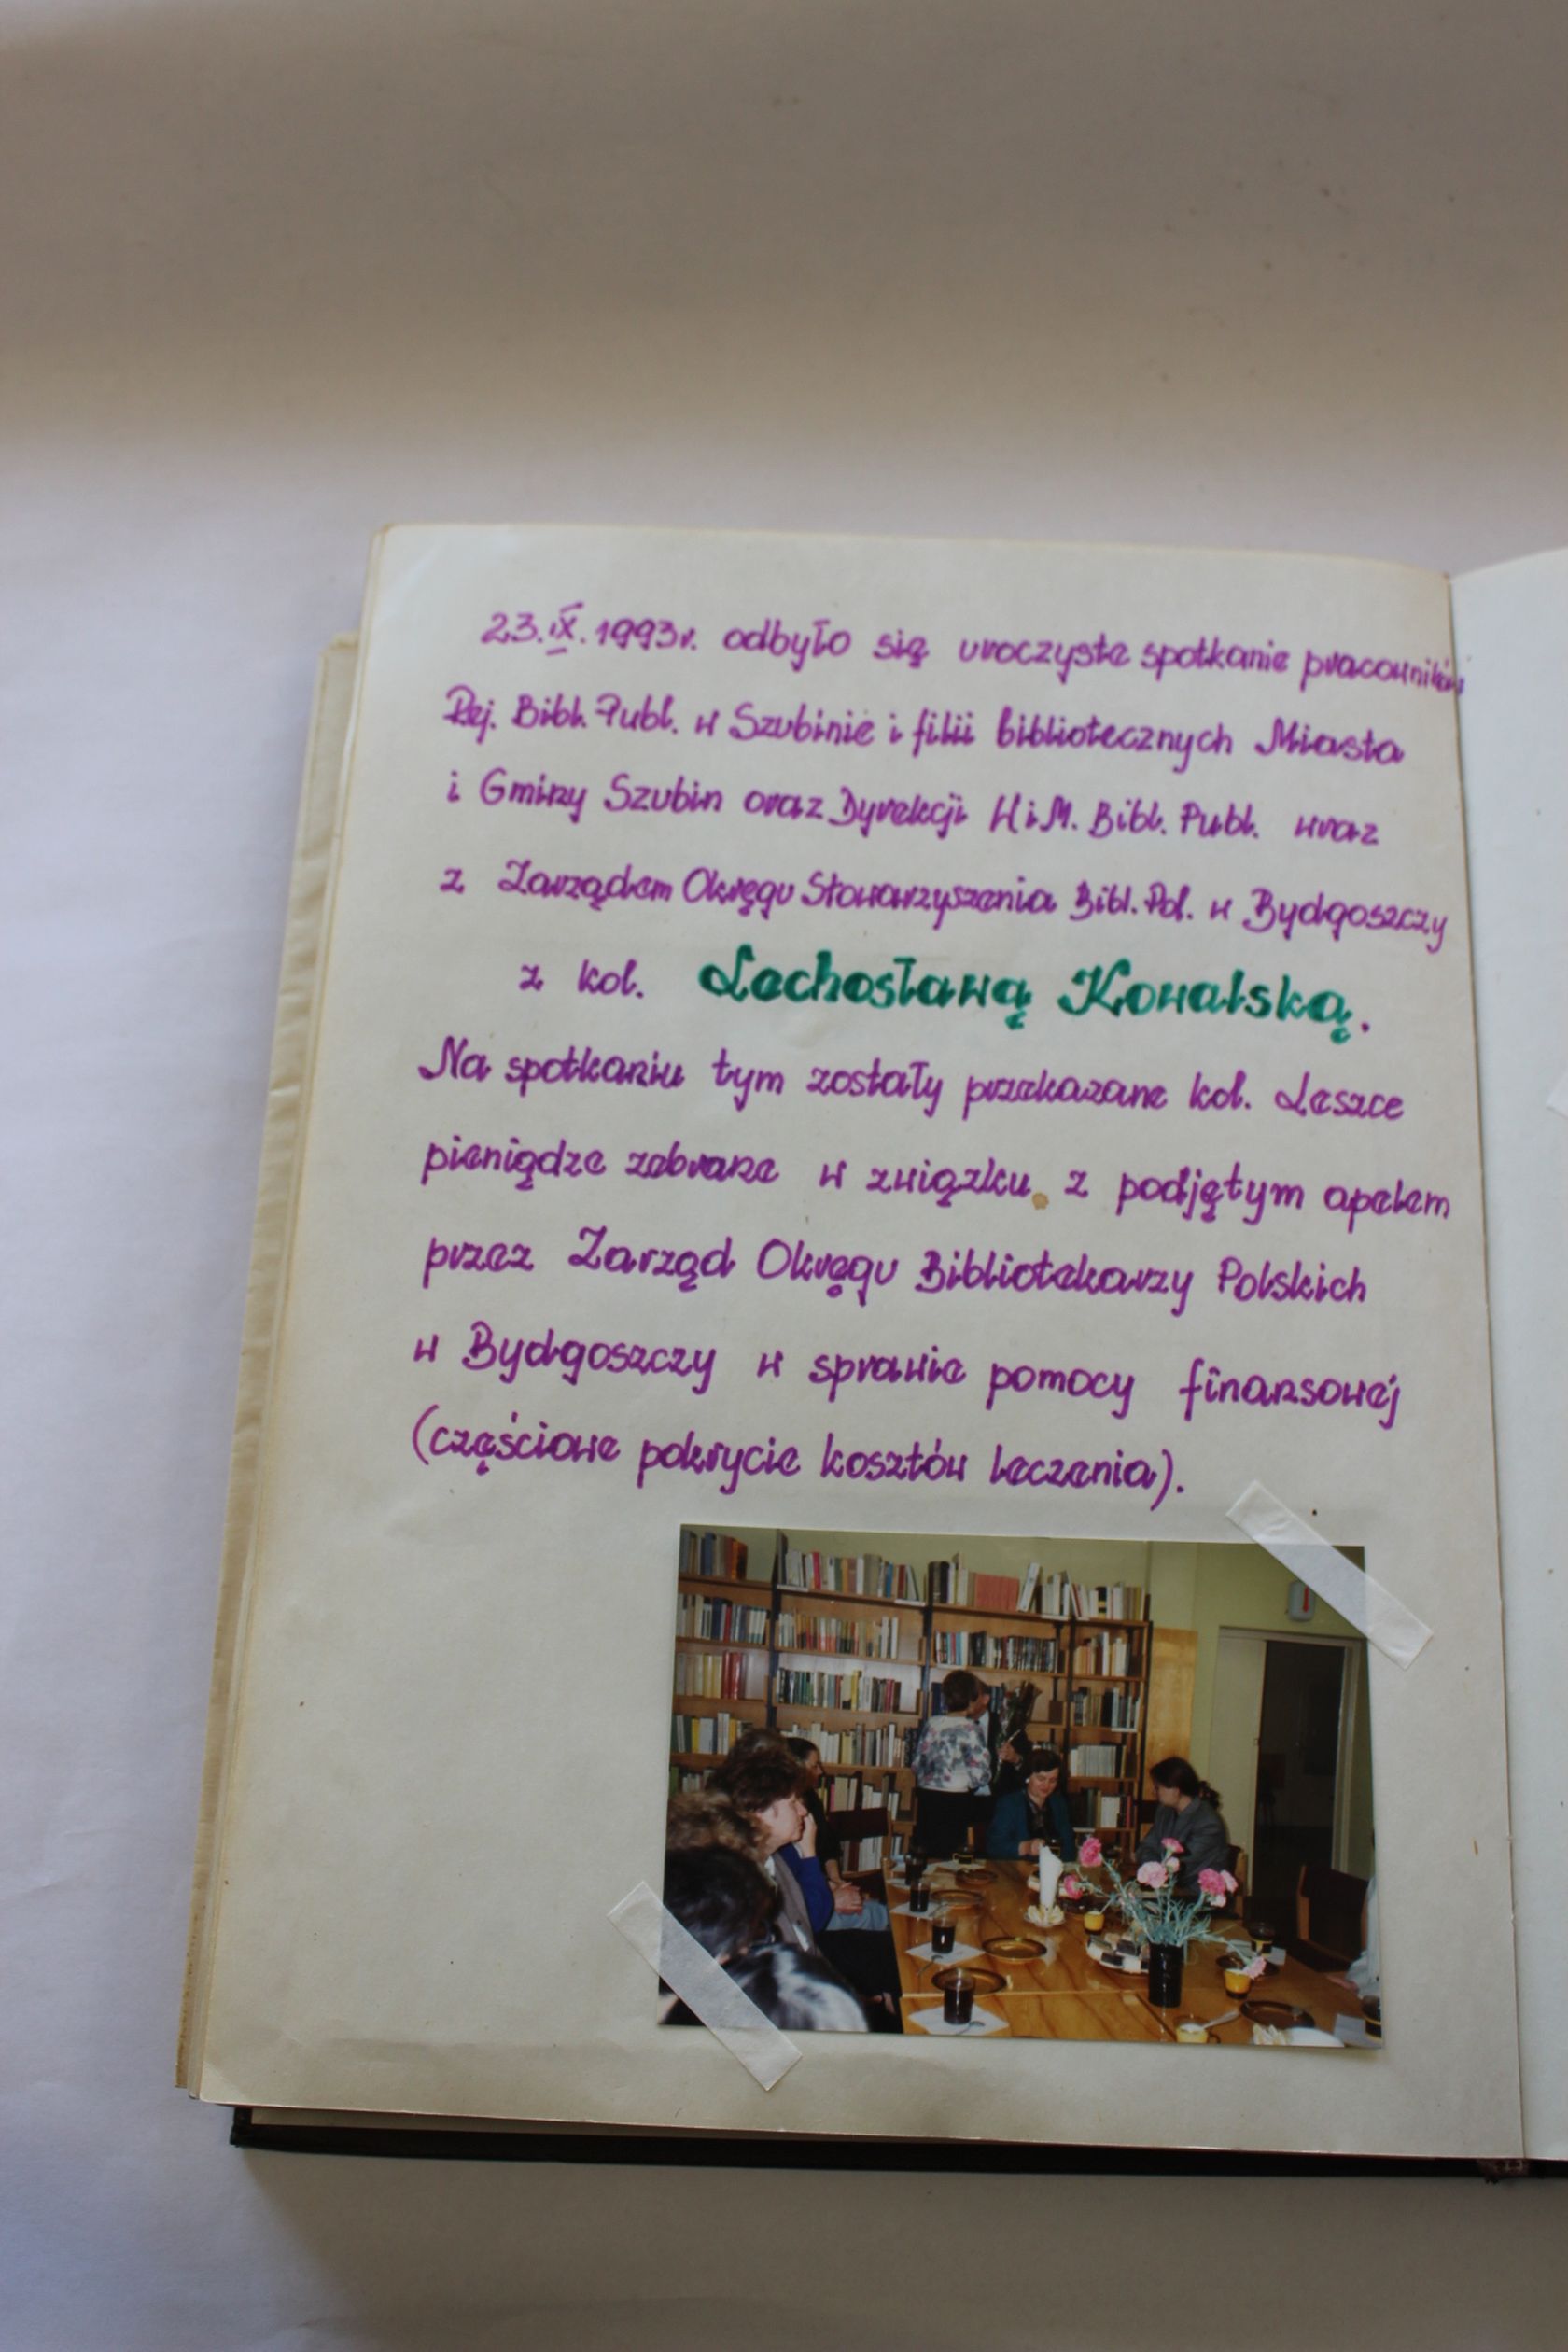 23.IX.1993r. odbyło się uroczyste spotkanie pracowników
Rej. Bibl. Publ. w Szubinie i filii bibliotecznych Miasta
i Gminy Szubin oraz Dyrekcji W i M. Bibl. Publ. wraz
z Zarządem Okręgu Stowarzyszenia Bibl. Pol. w Bydgoszczy
z kol. Lechosławą Kowalską.
Na spotkaniu tym zostały przekazane kol. Leszce
pieniądze zebrane w związku z podjętym apelem
przez Zarząd Okręgu Bibliotekarzy Polskich
w Bydgoszczy w sprawie pomocy finansowej
(częściowe pokrycie kosztów leczenia).